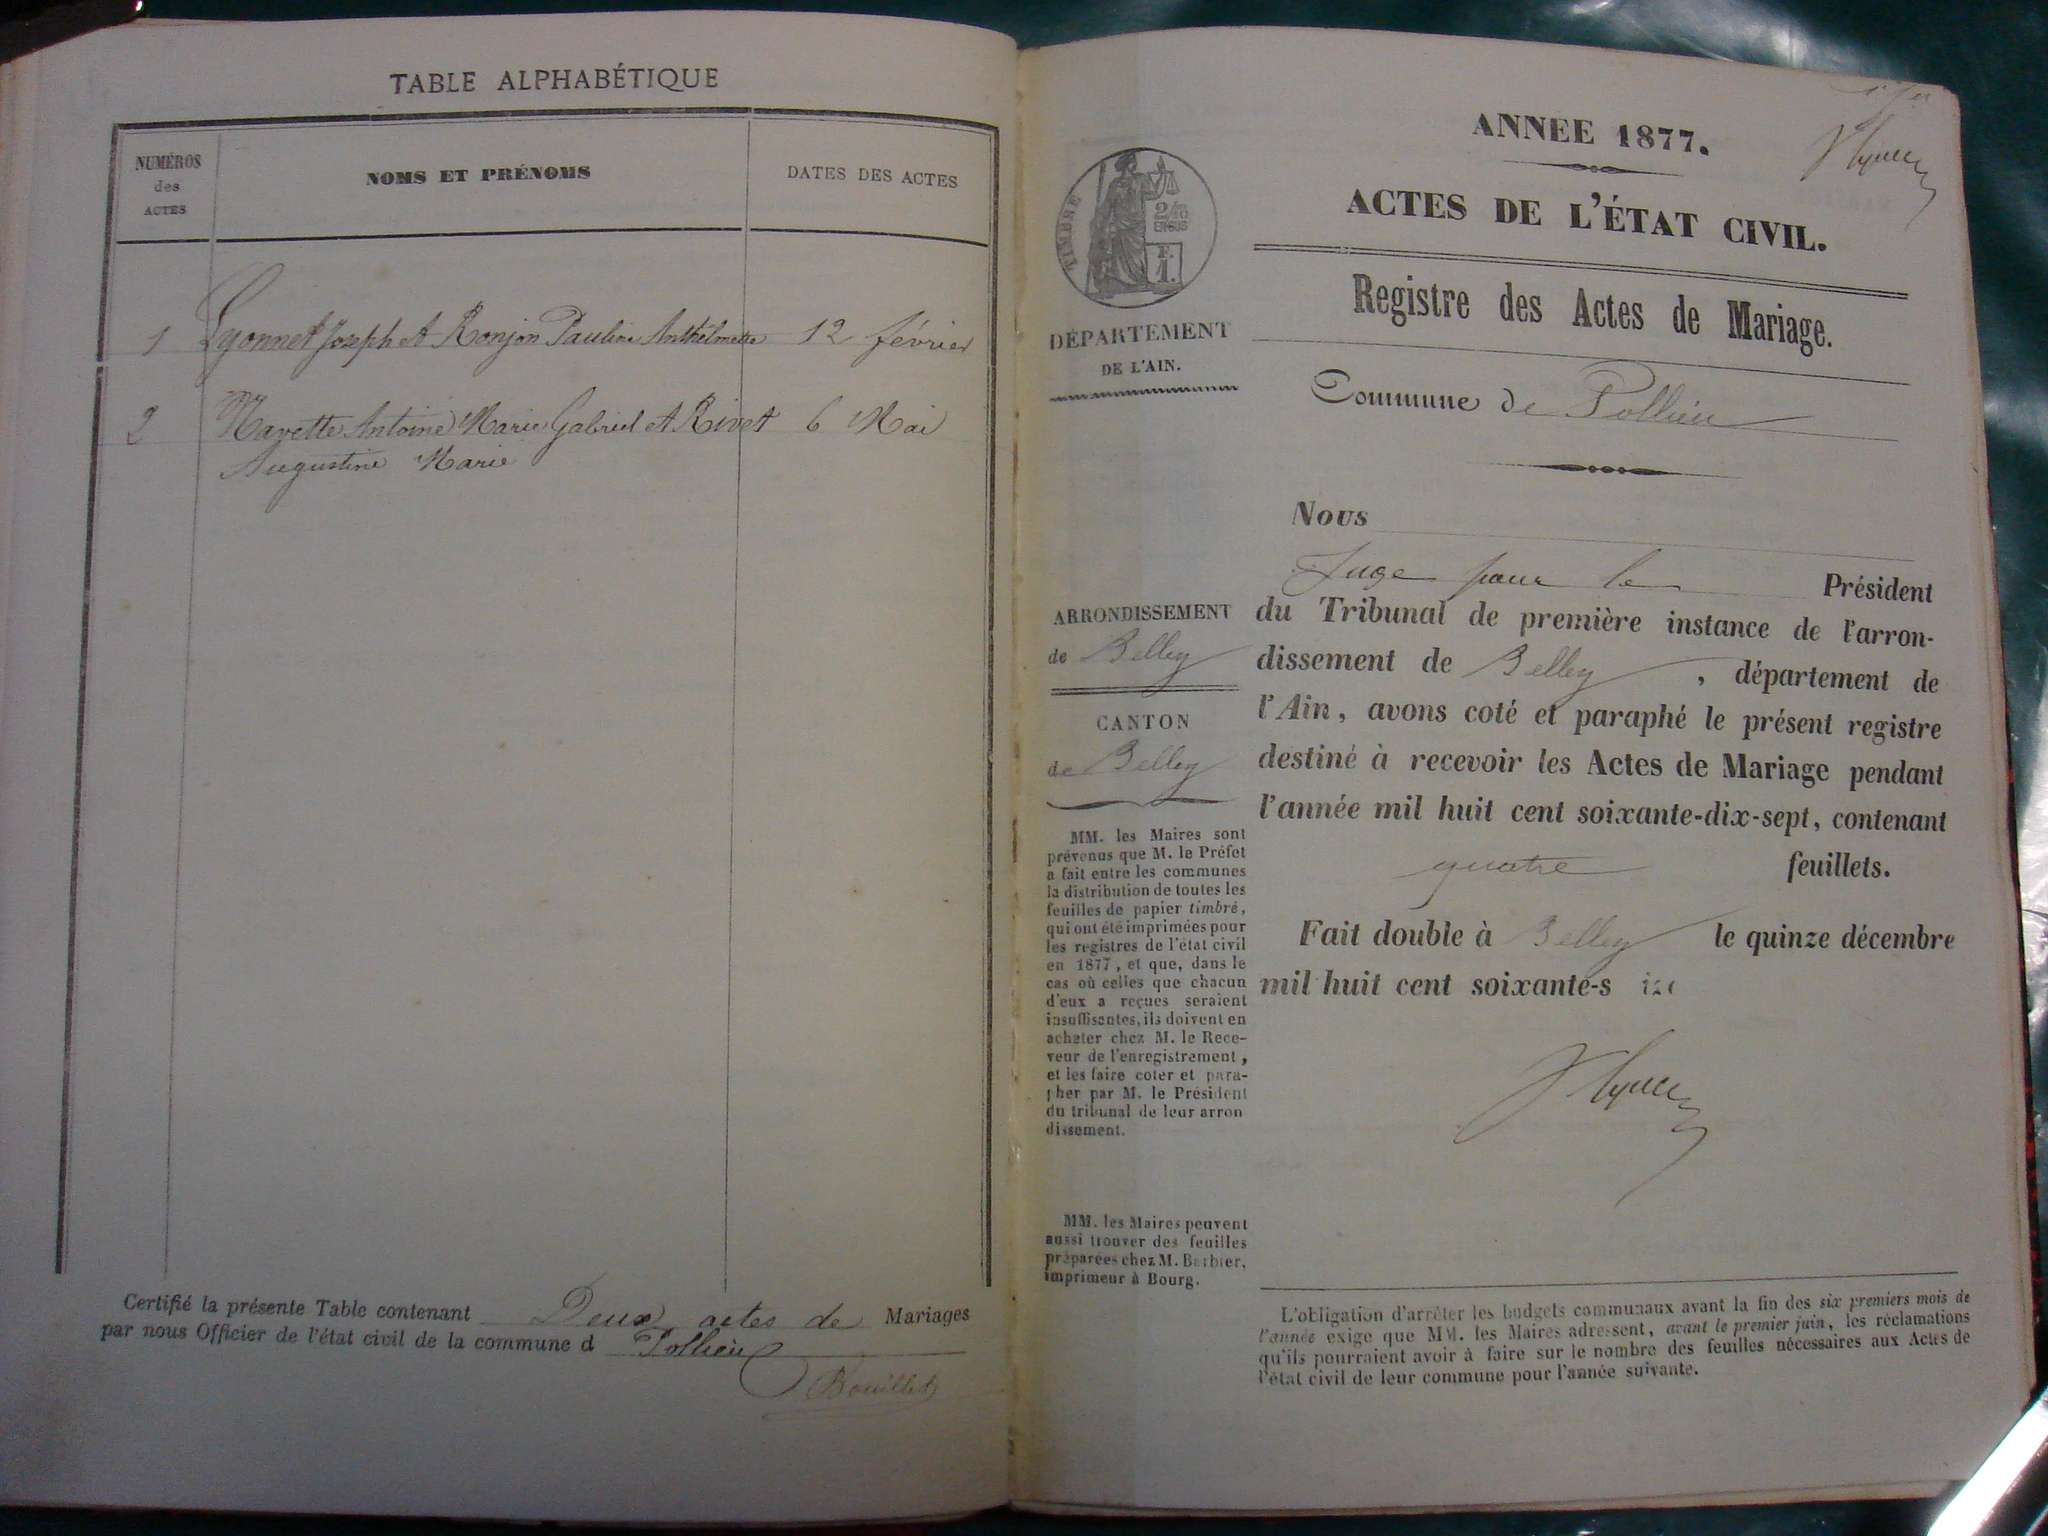 TABLE ALPHABÉTIQUE
NUMÉROS
des
ACTES
NOMS ET PRÉNOMS
DATES DES ACTES
1 Lyonnet Joseph et Ronjon Pauline Anthelmette 12 février
2 Navette Antoine Marie Gabriel et Rivet 6 Mai
Augustine Marie
Certifié la présente Table contenant Deux actes de Mariages
par nous Officier de l'état civil de la commune d Pollieu
Bouillet
ANNÉE 1877.
ACTES DE L'ÉTAT CIVIL.
Registre des Actes de Mariage.
Commune de Pollieu
TIMBRE
2/10
EN SUS
F.
1.
DÉPARTEMENT
DE L'AIN.
ARRONDISSEMENT
de Belley
CANTON
de Belley
MM. les Maires sont
prévenus que M. le Préfet
a fait entre les communes
la distribution de toutes les
feuilles de papier timbré,
qui ont été imprimées pour
les registres de l'état civil
en 1877, et que, dans le
cas où celles que chacun
d'eux a reçues seraient
insuffisantes, ils doivent en
acheter chez M. le Rece-
veur de l'enregistrement,
et les faire coter et para-
pher par M. le Président
du tribunal de leur arron
dissement.
MM. les Maires peuvent
aussi trouver des feuilles
préparées chez M. Barbier,
imprimeur à Bourg.
Nous
Juge pour le Président
du Tribunal de première instance de l'arron-
dissement de Belley, département de
l'Ain, avons coté et paraphé le présent registre
destiné à recevoir les Actes de Mariage pendant
l'année mil huit cent soixante-dix-sept, contenant
quatre feuillets.
Fait double à Belley le quinze décembre
mil huit cent soixante-s
L'obligation d'arrêter les budgets communaux avant la fin des six premiers mois de
l'année exige que MM. les Maires adressent, avant le premier juin, les réclamations
qu'ils pourraient avoir à faire sur le nombre des feuilles nécessaires aux Actes de
l'état civil de leur commune pour l'année suivante.